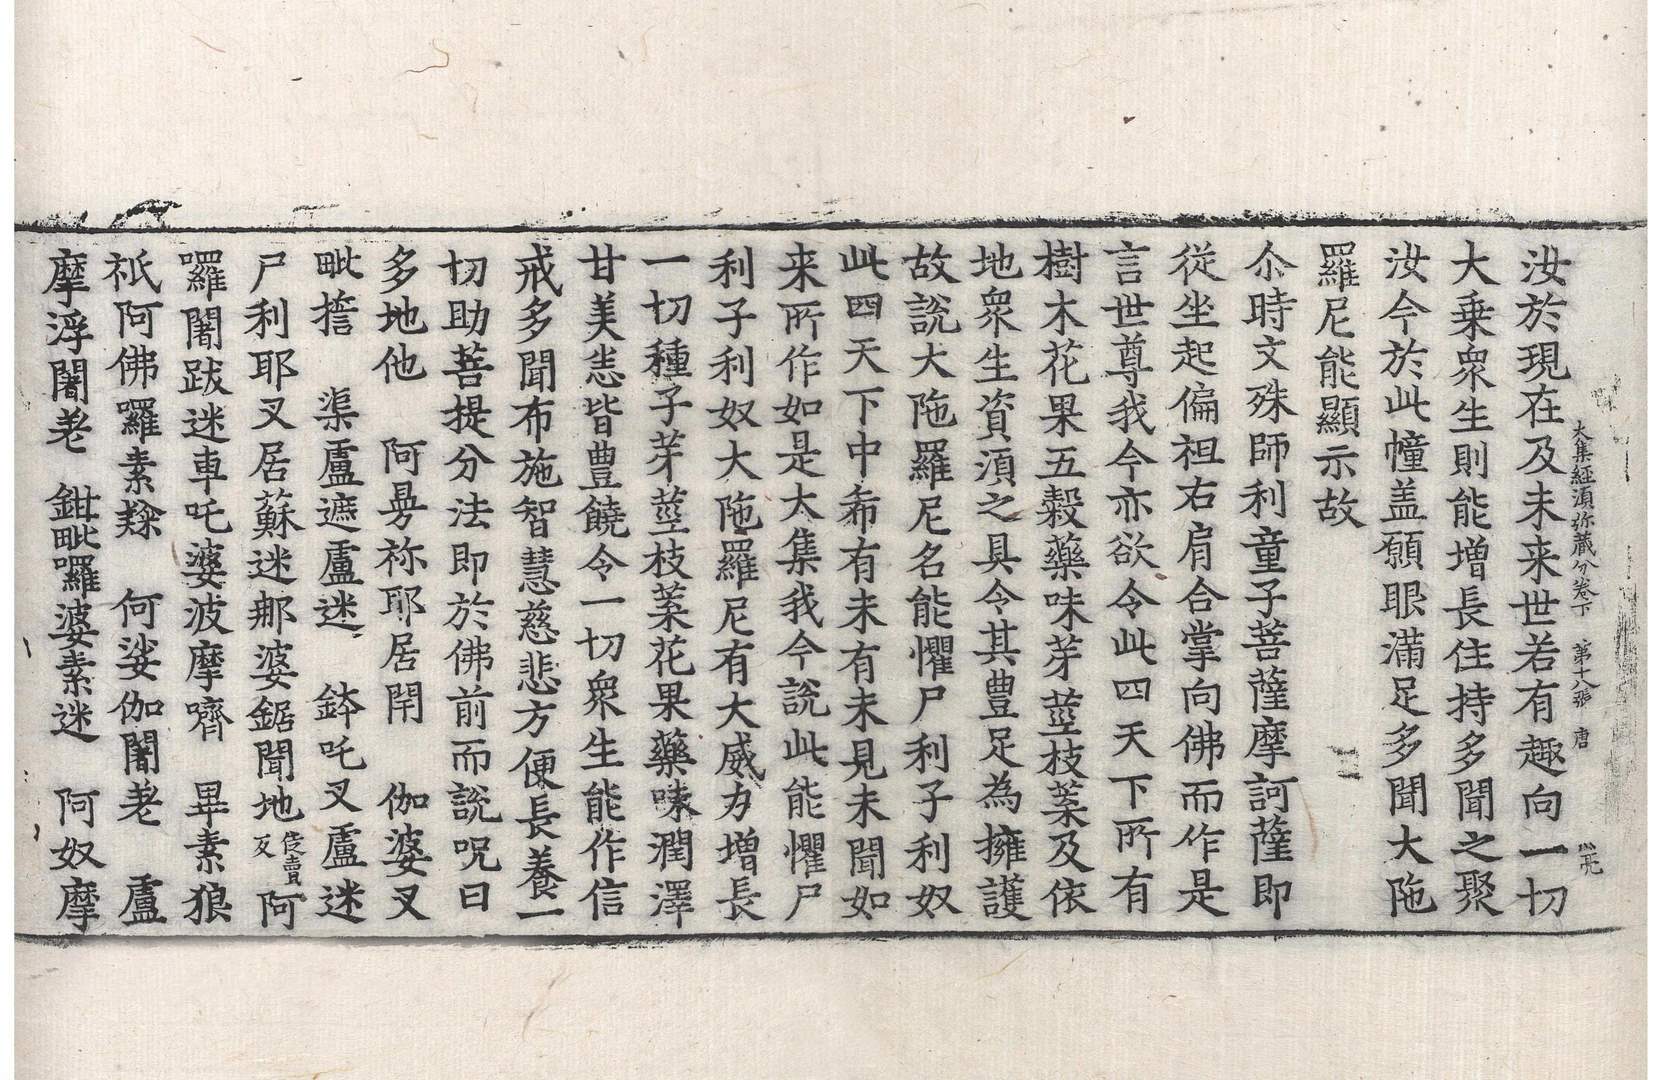 大集經須弥蔵分卷下　第十八張　唐
汝於現在及未来世若有趣向一切
大乗衆生則能增長住持多聞之聚
汝今於此幢盖願眼滿足多聞大陁
羅尼能顯示故
尒時文殊師利童子菩薩摩訶薩即
從坐起偏袒右肩合掌向佛而作是
言世尊我今亦欲令此四天下所有
樹木花果五穀藥味芽莖枝葉及依
地衆生資湏之具令其豊足為擁護
故說大陁羅尼名能懼尸利子利奴
此四天下中希有未有未見未聞如
来所作如是大集我今說此能懼尸
利子利奴大陁羅尼有大威力增長
一切種子芽莖枝葉花果藥味潤澤
甘美恚皆豊饒令一切衆生能作信
戒多聞布施智慧慈悲方便長養一
切助菩提分法即於佛前而說呪曰
多地他　阿㝵祢耶居閈　伽婆叉
毗擔　渠盧遮盧迷　鉢吒叉盧迷
尸利耶叉居蘇迷䣋婆鋸聞地侫賣反阿
囉闍跋迷車吒婆波摩嚌　畢素狼
祇阿佛囉素㜸　何娑伽闍荖　盧
摩浮闍荖　鉗毗囉婆素迷　阿奴摩